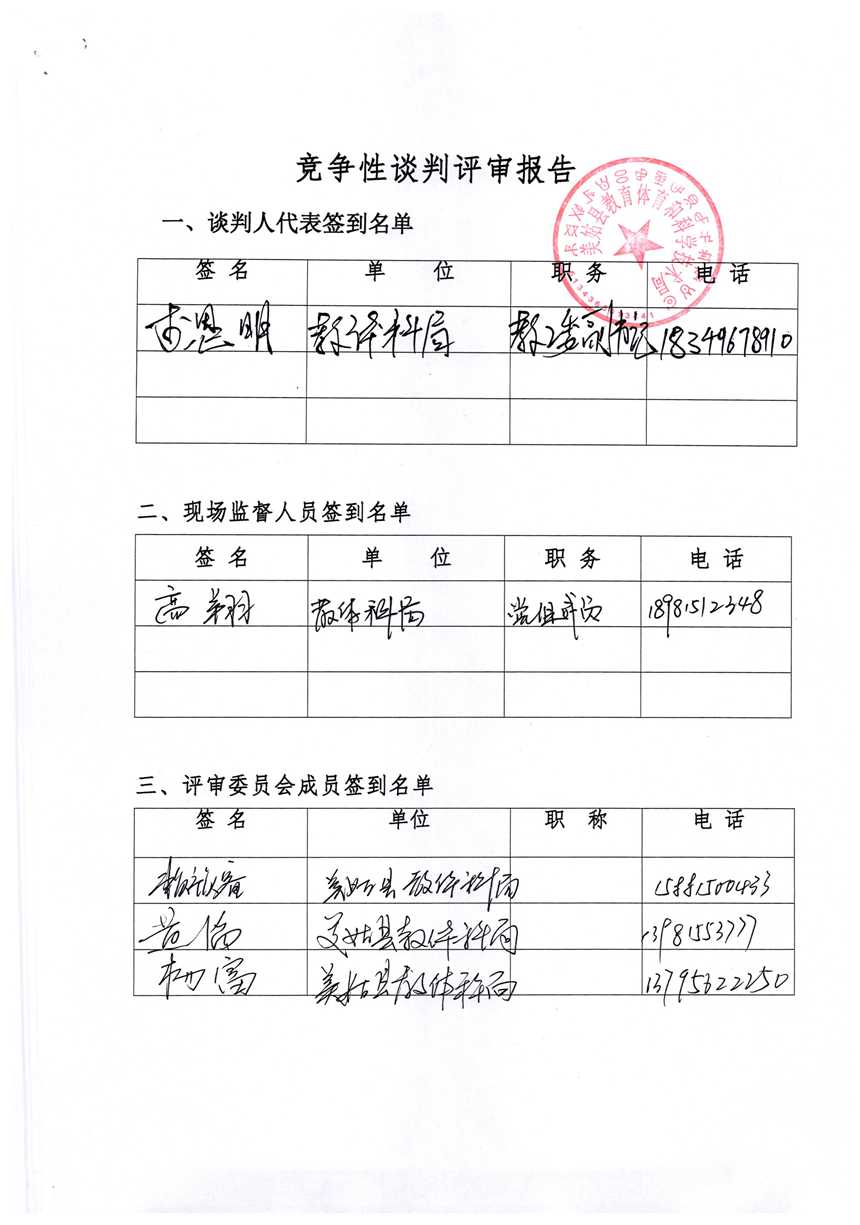 竞争性谈判评审报告
美姑县教育体育和科学技术局
一、谈判人代表签到名单
签 名 单 位 职 务 电 话
思明 教体科局 18349678910
二、现场监督人员签到名单
签 名 单 位 职 务 电 话
高 教体科局 党组成员 18981512348
三、评审委员会成员签到名单
签 名 单位 职 称 电 话
美姑县教体科局 15881500433
美姑县教体科局
美姑县教体科局 13795622250